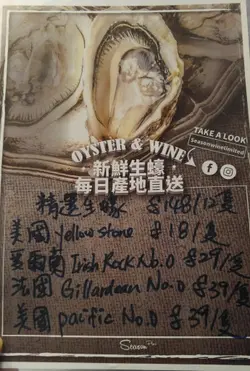 OYSTER & WINE
TAKE A LOOK
Seasonwinelimited
新鮮生蠔
每日產地直送
精選生蠔 $148/12隻
美國 yellow stone $18/隻
愛爾蘭 Irish Rock No.0 $29/隻
法國 Gillardeau No.0 $39/隻
美國 pacific No.0 $39/隻
Season